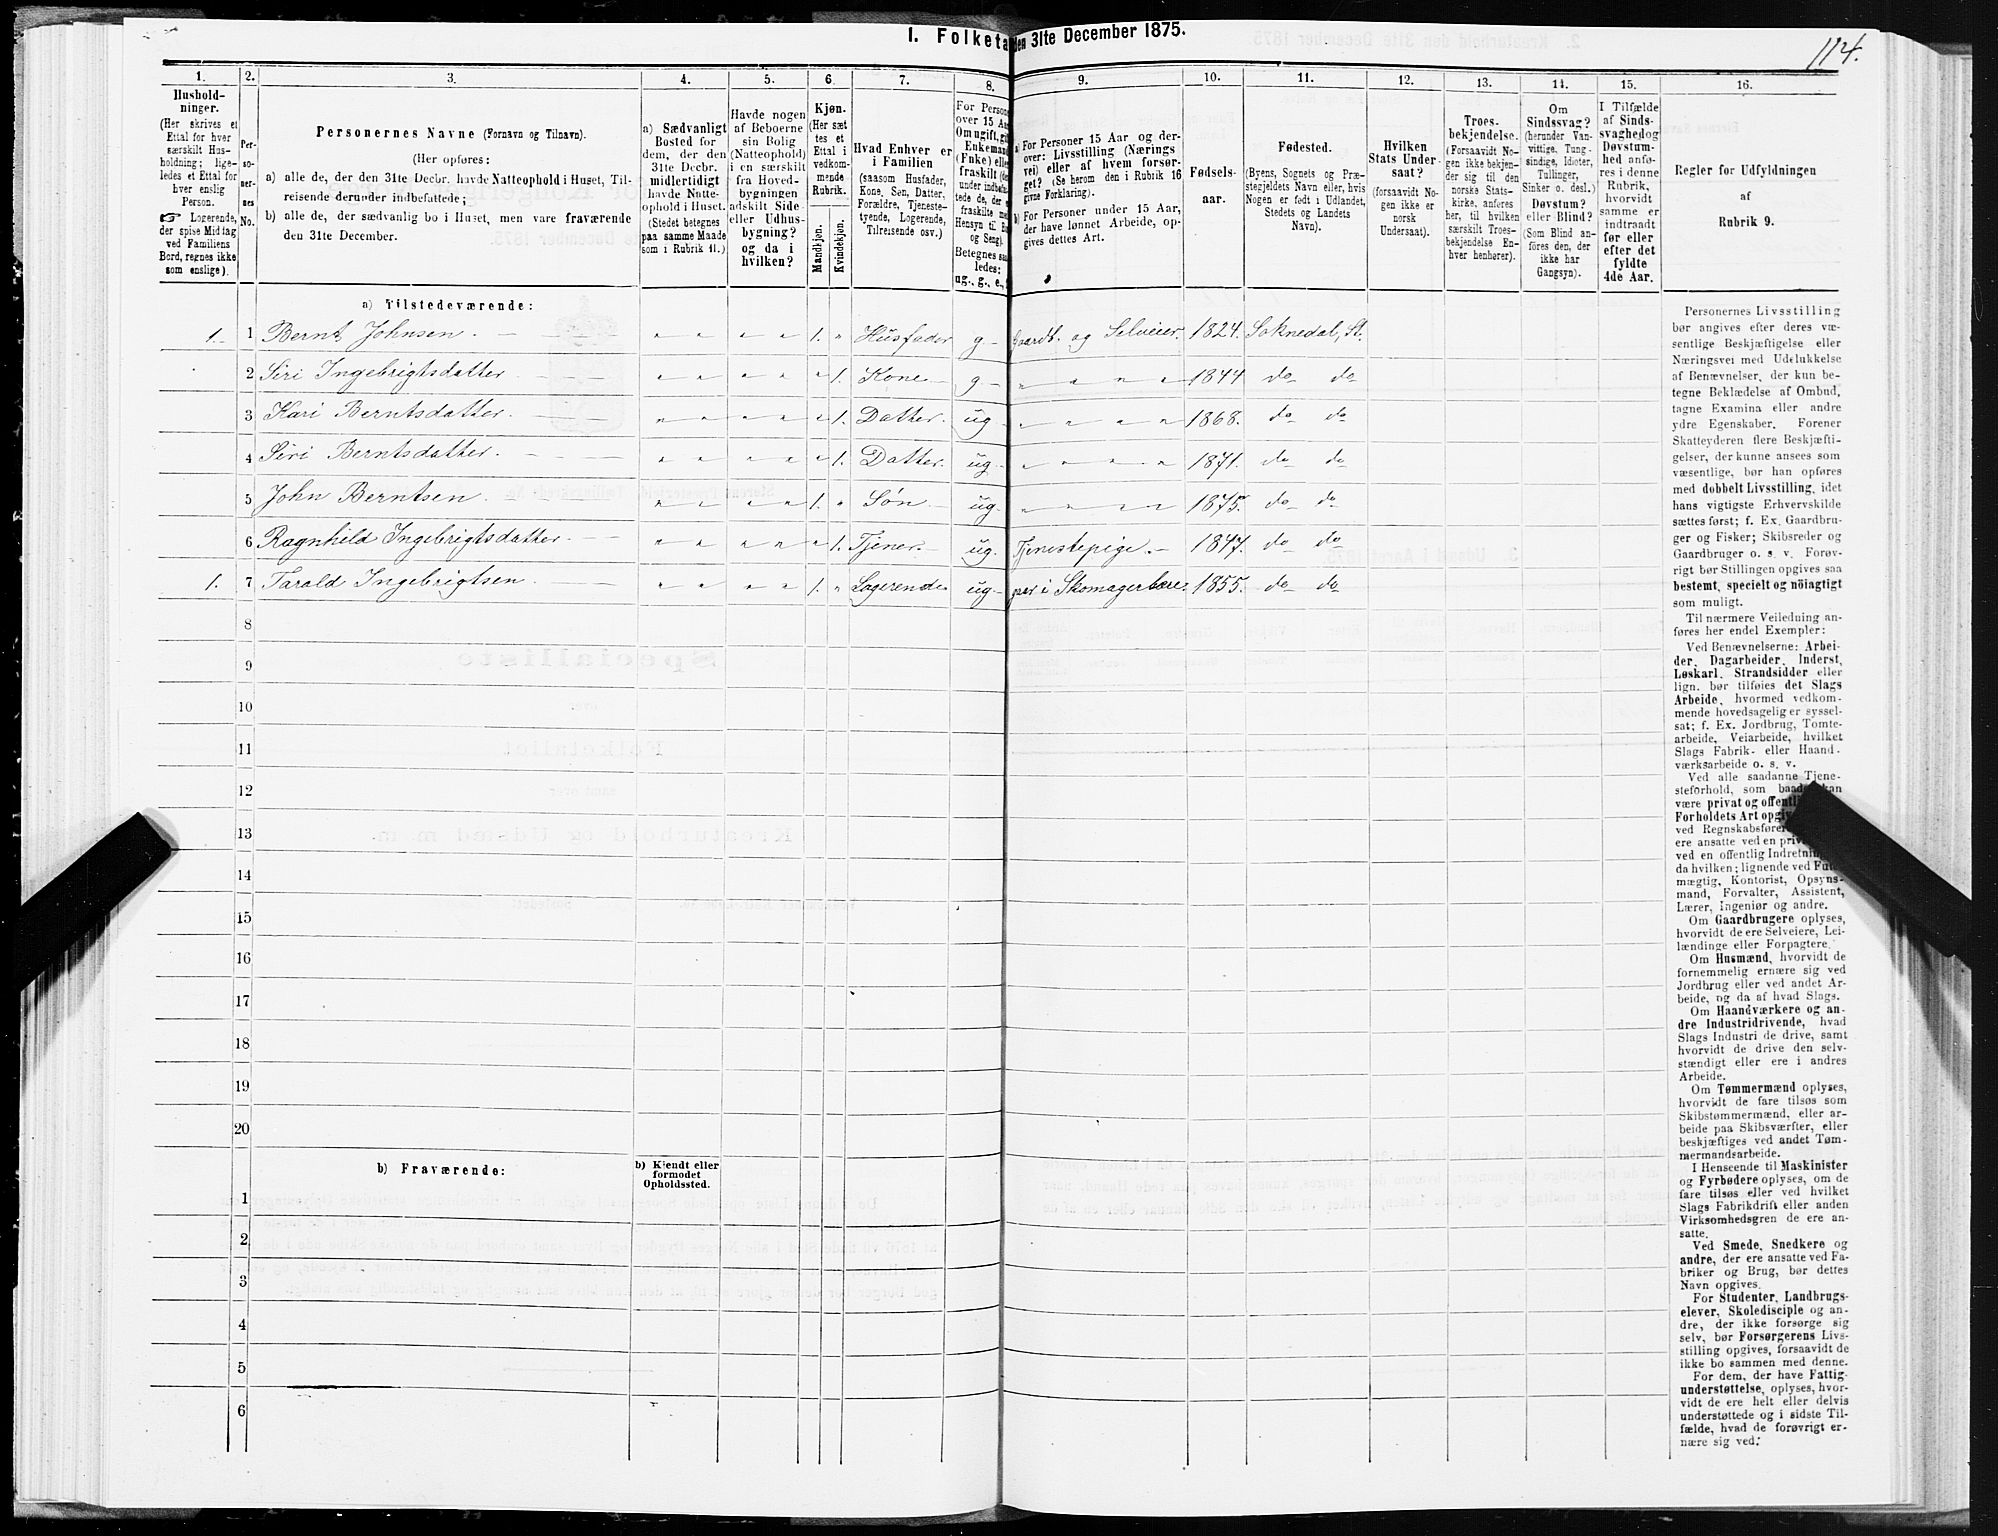 I. Folketa den 31te December 1875.
114.
1. 2. 3. 4. 5. 6. 7. 8. 9. 10. 11. 12. 13. 14. 15. 16.
Hushold-
ninger.
(Her skrives et
Ettal for hver
særskilt Hus-
holdning; lige-
ledes et Ettal for
hver enslig
Person.
☞ Logerende,
der spise Middag
ved Familiens
Bord, regnes ikke
som enslige).
Per-
so-
ner-
nes
No.
Personernes Navne (Fornavn og Tilnavn).
(Her opføres:
a) alle de, der den 31te Decbr. havde Natteophold i Huset, Til-
reisende derunder indbefattede;
b) alle de, der sædvanlig bo i Huset, men vare fraværende
den 31te December.
a) Sædvanligt
Bosted for
dem, der den
31te Decbr.
midlertidigt
havde Natte-
ophold i Huset.
(Stedet betegnes
paa samme Maade
som i Rubrik 11.)
Havde nogen
af Beboerne
sin Bolig
(Natteophold)
i en særskilt
fra Hoved-
bygningen
adskilt Side-
eller Udhus-
bygning?
og da i
hvilken?
Kjøn.
(Her sæt
tes et
Ettal i
vedkom-
mende
Rubrik.
Mandkjøn.
Kvindekjøn.
Hvad Enhver er
i Familien
(saasom Husfader,
Kone, Søn, Datter,
Forældre, Tjeneste-
tyende, Logerende,
Tilreisende osv.)
For Person
over 15 Aar
Om ugift, gi
Enkemand
(Enke) elle
fraskilt (der
under indbefat
tede de, der
fraskilte med
Hensyn til Bo
og Seng).
Betegnes saa
ledes:
ug., g., e.,
a) For Personer 15 Aar og der-
over: Livsstilling (Nærings
vei) eller af hvem forsør-
get? (Se herom den i Rubrik 16
givne Forklaring).
b) For Personer under 15 Aar,
der have lønnet Arbeide, op-
gives dettes Art.
Fødsels-
aar.
Fødested.
(Byens, Sognets og Præ-
stegjeldets Navn eller, hvis
Nogen er født i Udlandet,
Stedets og Landets
Navn).
Hvilken
Stats Under-
saat?
(forsaavidt No-
gen ikke er
norsk
Undersaat).
Troes-
bekjendelse.
(Forsaavidt No-
gen ikke bekjen-
der sig til den
norske Stats-
kirke, anføres
her, til hvilken
særskilt Troes-
bekjendelse En-
hver henhører).
Om
Sindssvag?
(herunder Van-
vittige, Tung-
sindige, Idioter,
Tullinger,
Sinker o. desl.)
Døvstum?
eller Blind?
(Som Blind an-
føres den, der
ikke har
Gangsyn).
I Tilfælde
af Sinds-
svaghed og
Døvstum-
hed anfø-
res i denne
Rubrik,
hvorvidt
samme er
indtraadt
før eller
efter det
fyldte
4de Aar.
Regler for Udfyldningen
af
Rubrik 9.
a) Tilstedeværende:
1. 1 Bernt Johnsen. 1. Husfader g Gaardb. og Selveier. 1824. Soknedal, St.
2 Siri Ingebrigtsdatter 1. Kone g. 1844 do do
3 Kari Berntsdatter. 1. Datter. ug 1868. do do
4 Siri Berntsdatter. 1. Datter. ug. 1871. do do
5 John Berntsen. 1. Søn ug. 1875. do do
6 Ragnhild Ingebrigtsdatter. 1. Tjener. ug. Tjenestepige. 1847. do do
1. 7 Tarald Ingebrigtsen 1. Logerende ug. par i Skomagerlære. 1855. do do
8
9
10
11
12
13
14
15
16
17
18
19
20
b) Fraværende:
b) Kjendt eller
formodet
Opholdssted.
1
2
3
4
5
6
Personernes Livsstilling
bør angives efter deres væ-
sentlige Beskjæftigelse eller
Næringsvei med Udelukkelse
af Benævnelser, der kun be-
tegne Beklædelse af Ombud,
tagne Examina eller andre
ydre Egenskaber. Forener
Skatteyderen flere Beskjæfti-
gelser, der kunne ansees som
væsentlige, bør han opføres
med dobbelt Livsstilling, idet
hans vigtigste Erhvervskilde
sættes først; f. Ex. Gaardbru-
ger og Fisker; Skibsreder og
Gaardbruger o. s. v. Forøv-
rigt bør Stillingen opgives saa
bestemt, specielt og nöiagtigt
som muligt.
Til nærmere Veiledning an-
føres her endel Exempler:
Ved Benævnelserne: Arbei-
der, Dagarbeider, Inderst,
Løskarl, Strandsidder eller
lign. bør tilføies det Slags
Arbeide, hvormed vedkom-
mende hovedsagelig er syssel-
sat; f. Ex. Jordbrug, Tomte-
arbeide, Veiarbeide, hvilket
Slags Fabrik- eller Haand-
værksarbeide o. s. v.
Ved alle saadanne Tjene-
steforhold, som baade kan
være privat og offentl
Forholdets Art opgiv
ved Regnskabsfører
ere ansatte ved en priv
ved en offentlig Indretnin
da hvilken; lignende ved Fuld-
mægtig, Kontorist, Opsyns-
mand, Forvalter, Assistent,
Lærer, Ingeniør og andre.
Om Gaardbrugere oplyses,
hvorvidt de ere Selveiere, Lei-
lændinge eller Forpagtere.
Om Husmænd, hvorvidt de
fornemmelig ernære sig ved
Jordbrug eller ved andet Ar-
beide, og da af hvad Slags.
Om Haandværkere og an-
dre Industridrivende, hvad
Slags Industri de drive, samt
hvorvidt de drive den selv-
stændigt eller ere i andres
Arbeide.
Om Tømmermænd oplyses,
hvorvidt de fare tilsøs som
Skibstømmermænd, eller ar-
beide paa Skibsværfter, eller
beskjæftiges ved andet Tøm-
mermandsarbeide.
I Henseende til Maskinister
og Fyrbødere oplyses, om de
fare tilsøs eller ved hvilket
Slags Fabrikdrift eller anden
Virksomhedsgren de ere an-
satte.
Ved Smede, Snedkere og
andre, der ere ansatte ved Fa-
briker og Brug, bør dettes
Navn opgives.
For Studenter, Landbrugs-
elever, Skoledisciple og an-
dre, der ikke forsørge sig
selv, bør Forsørgerens Livs-
stilling opgives, forsaavidt de
ikke bo sammen med denne.
For dem, der have Fattig-
understøttelse, oplyses, hvor-
vidt de ere helt eller delvis
understøttede og i sidste Til-
fælde, hvad de forøvrigt er-
nære sig ved.